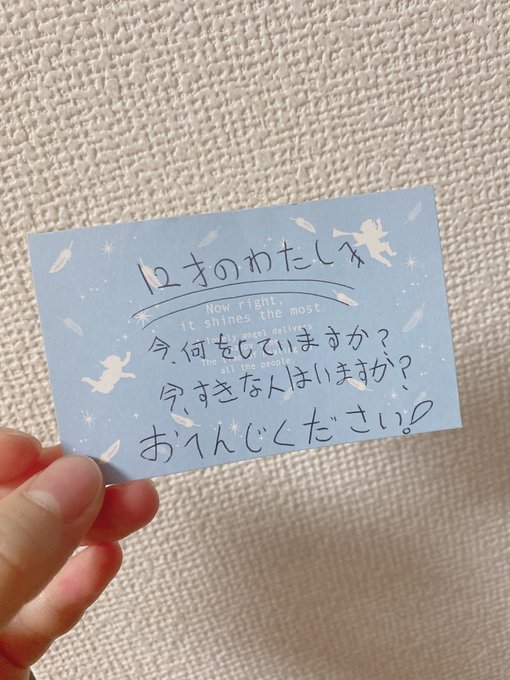 12才のわたしへ
Now right,
it shines the most.
angel delivers
The
all the people.
今、何をしていますか?
今、すきな人はいますか?
おへんじください!